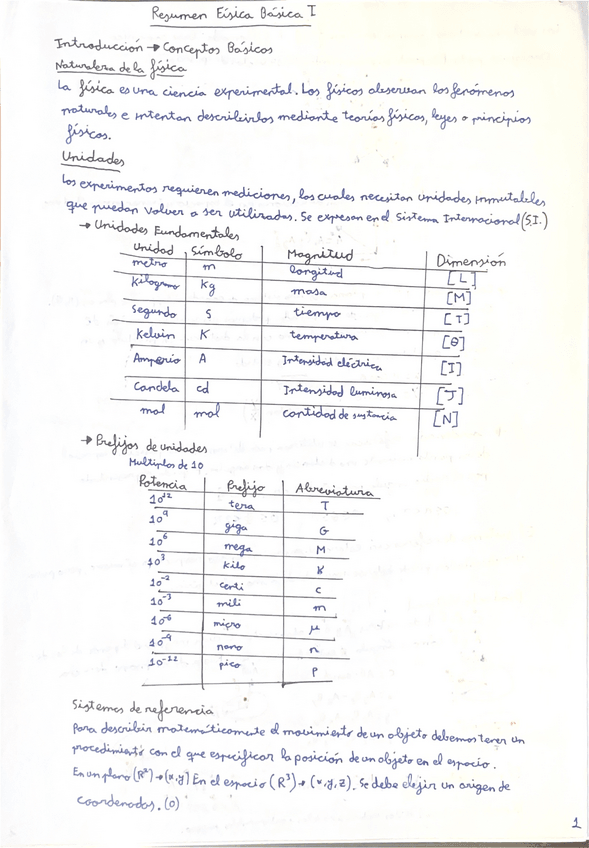 Resumen Física Básica I
Introducción → Conceptos Básicos
Naturaleza de la física
La física es una ciencia experimental. Los físicos observan los fenómenos
naturales e intentan describirlos mediante teorías físicas, leyes o principios
físicos.
Unidades
Los experimentos requieren mediciones, las cuales necesitan unidades inmutables
que puedan volver a ser utilizadas. Se expresan en el Sistema Internacional (S.I.)
→ Unidades Fundamentales
Unidad Símbolo Magnitud Dimensión
metro m longitud [L]
Kilogramo Kg masa [M]
Segundo s tiempo [T]
Kelvin K temperatura [θ]
Amperio A Intensidad eléctrica [I]
Candela cd Intensidad luminosa [J]
mol mol cantidad de sustancia [N]
→ Prefijos de unidades
Multiplos de 10
Potencia Prefijo Abreviatura
10¹² tera T
10⁹ giga G
10⁶ mega M
10³ kilo K
10⁻² centi c
10⁻³ mili m
10⁻⁶ micro μ
10⁻⁹ nano n
10⁻¹² pico p
Sistemas de referencia
Para describir matemáticamente el movimiento de un objeto debemos tener un
procedimiento con el que especificar la posición de un objeto en el espacio.
En un plano (R²) → (x,y] En el espacio (R³) → (x,y,z). Se debe elejir un origen de
coordenadas. (0)
1